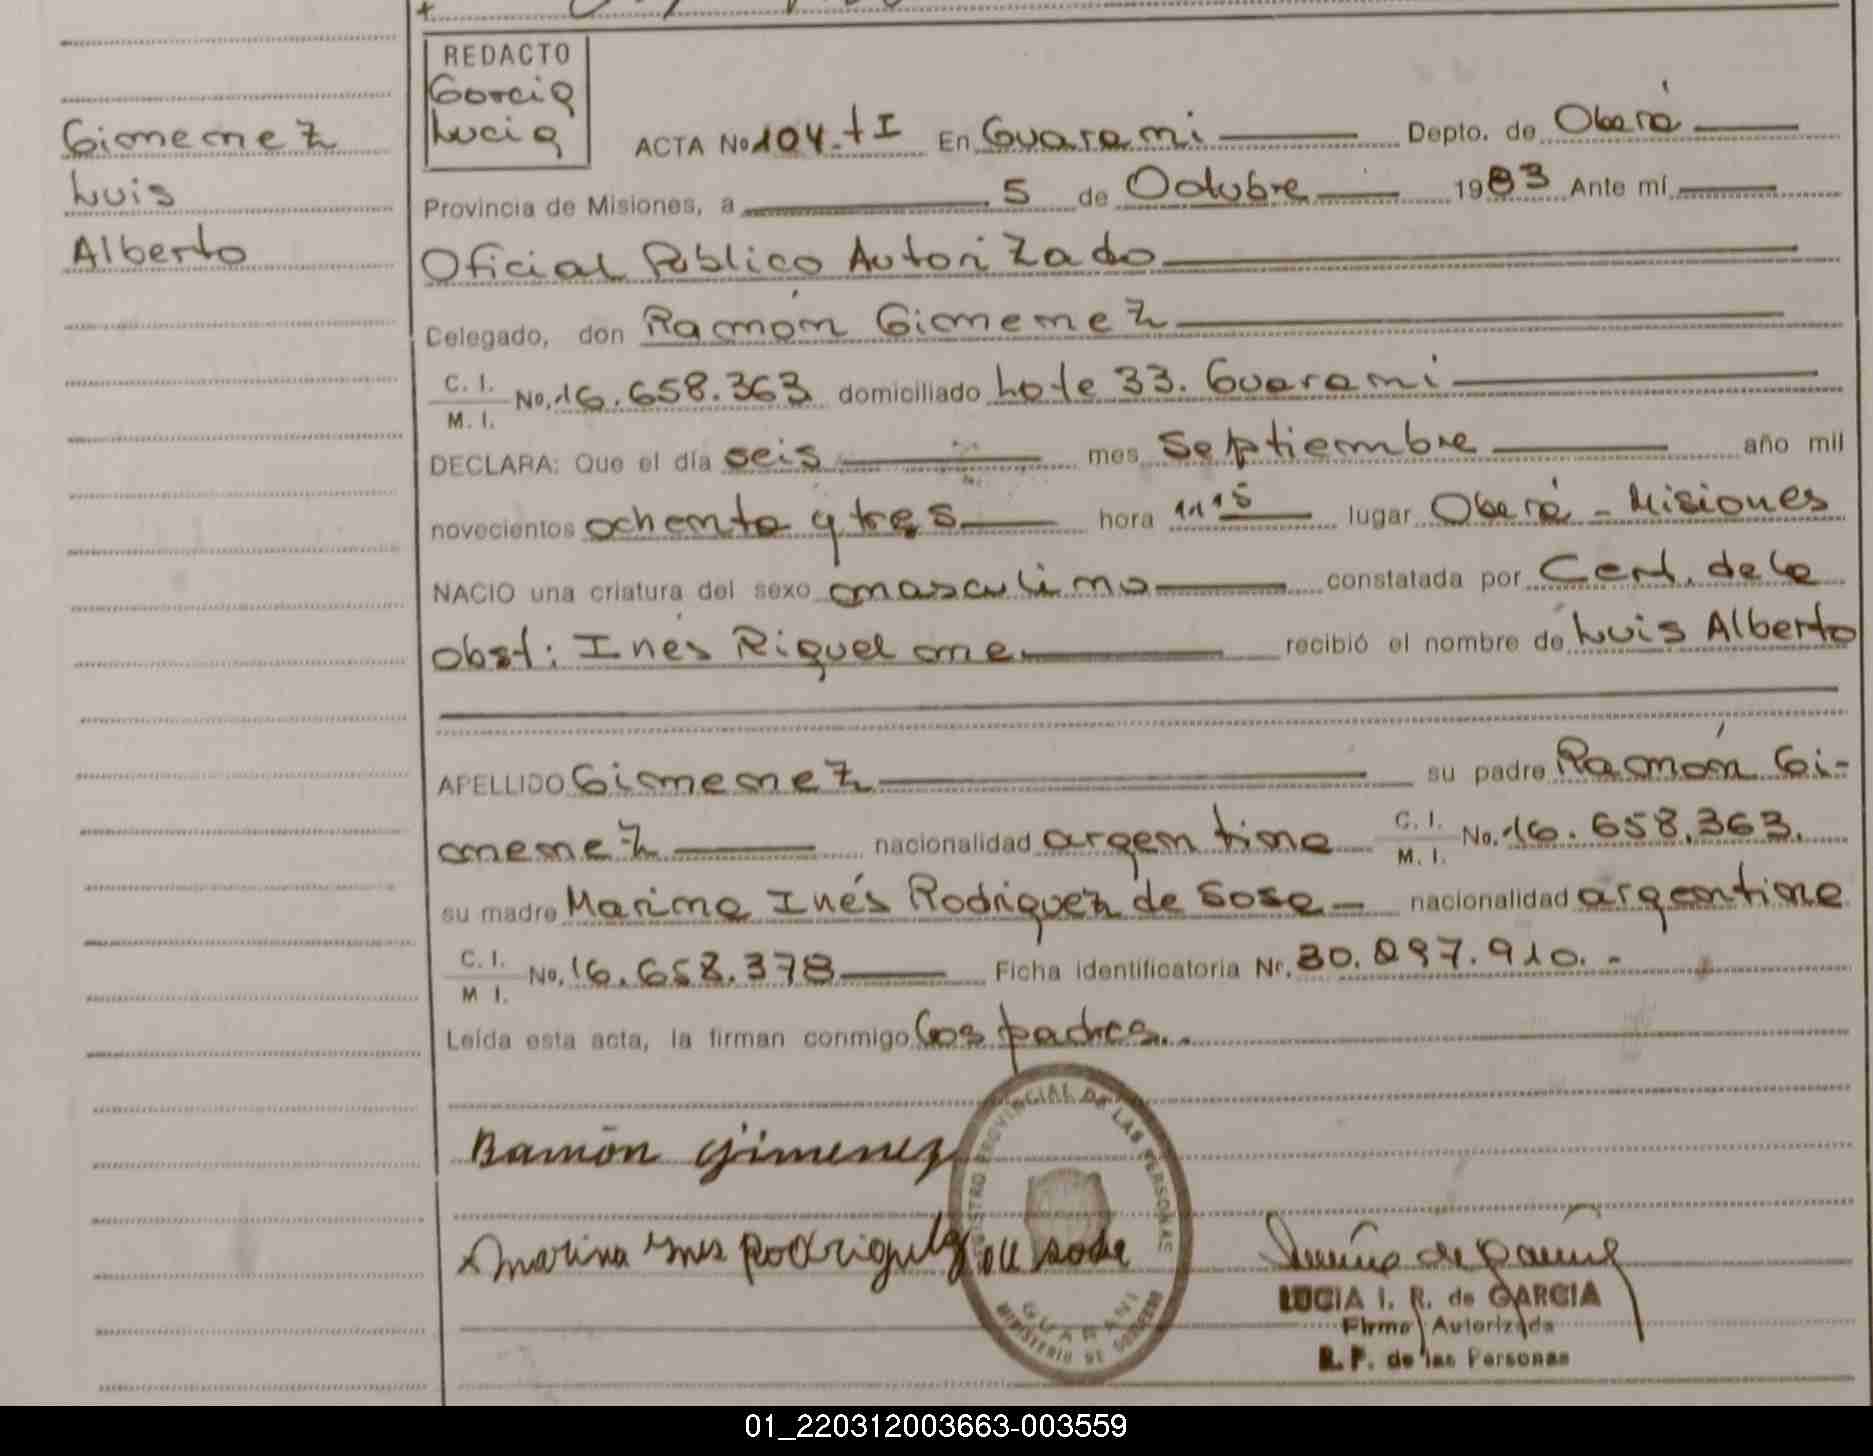 REDACTO
Garcia
Lucia
Gimenez
Luis
Alberto
ACTA No 104 - t I En Guarani Depto. de Oberá
Provincia de Misiones, a 5 de Octubre 1983 Ante mí
Oficial Público Autorizado
Celegado, don Ramón Gimenez
C. I. / M. I. No. 16.658.363 domiciliado Lote 33. Guarani
DECLARA: Que el día seis mes Septiembre año mil
novecientos ochenta y tres hora 11 15 lugar Oberá - Misiones
NACIO una criatura del sexo masculino constatada por Cert. de la
obst: Inés Riquelme recibió el nombre de Luis Alberto
APELLIDO Gimenez su padre Ramón Gi-
menez nacionalidad argentina C. I. / M. I. No. 16.658.363.
su madre Marina Inés Rodriguez de Sosa nacionalidad argentina
C. I. / M I. No. 16.658.378 Ficha identificatoria Nr. 30.297.910. -
Leída esta acta, la firman conmigo los padres.
Ramón Gimenez
Marina Ines Rodriguez de Sosa
REGISTRO PROVINCIAL DE LAS PERSONAS
GUARANI
MINISTERIO DE GOBIERNO
LUCIA I. R. de GARCIA
Firma Autorizada
R. P. de las Personas
01_220312003663-003559